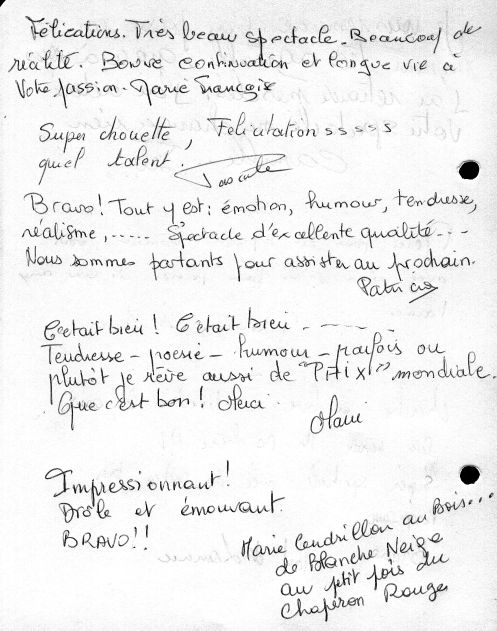 Félications. Très beau spectacle. Beaucoup de
réalité. Bonne continuation et longue vie à
Votre passion. Marie Françoise
Super chouette, Felicitation s s s s s
quel talent.
Bravo! Tout y est: émotion, humour, tendresse,
réalisme, ..... Spectacle d'excellente qualité...
Nous sommes partants pour assister au prochain.
Patricia
C'était bien! C'était bien -----
Tendresse - poésie - humour - parfois ou
plutôt je rêve aussi de "PITIX" mondiale.
Que c'est bon! Merci
Impressionnant!
Drôle et émouvant.
BRAVO!!
Marie Cendrillon au Bois...
de Blanche Neige
au petit pois du
Chaperon Rouge